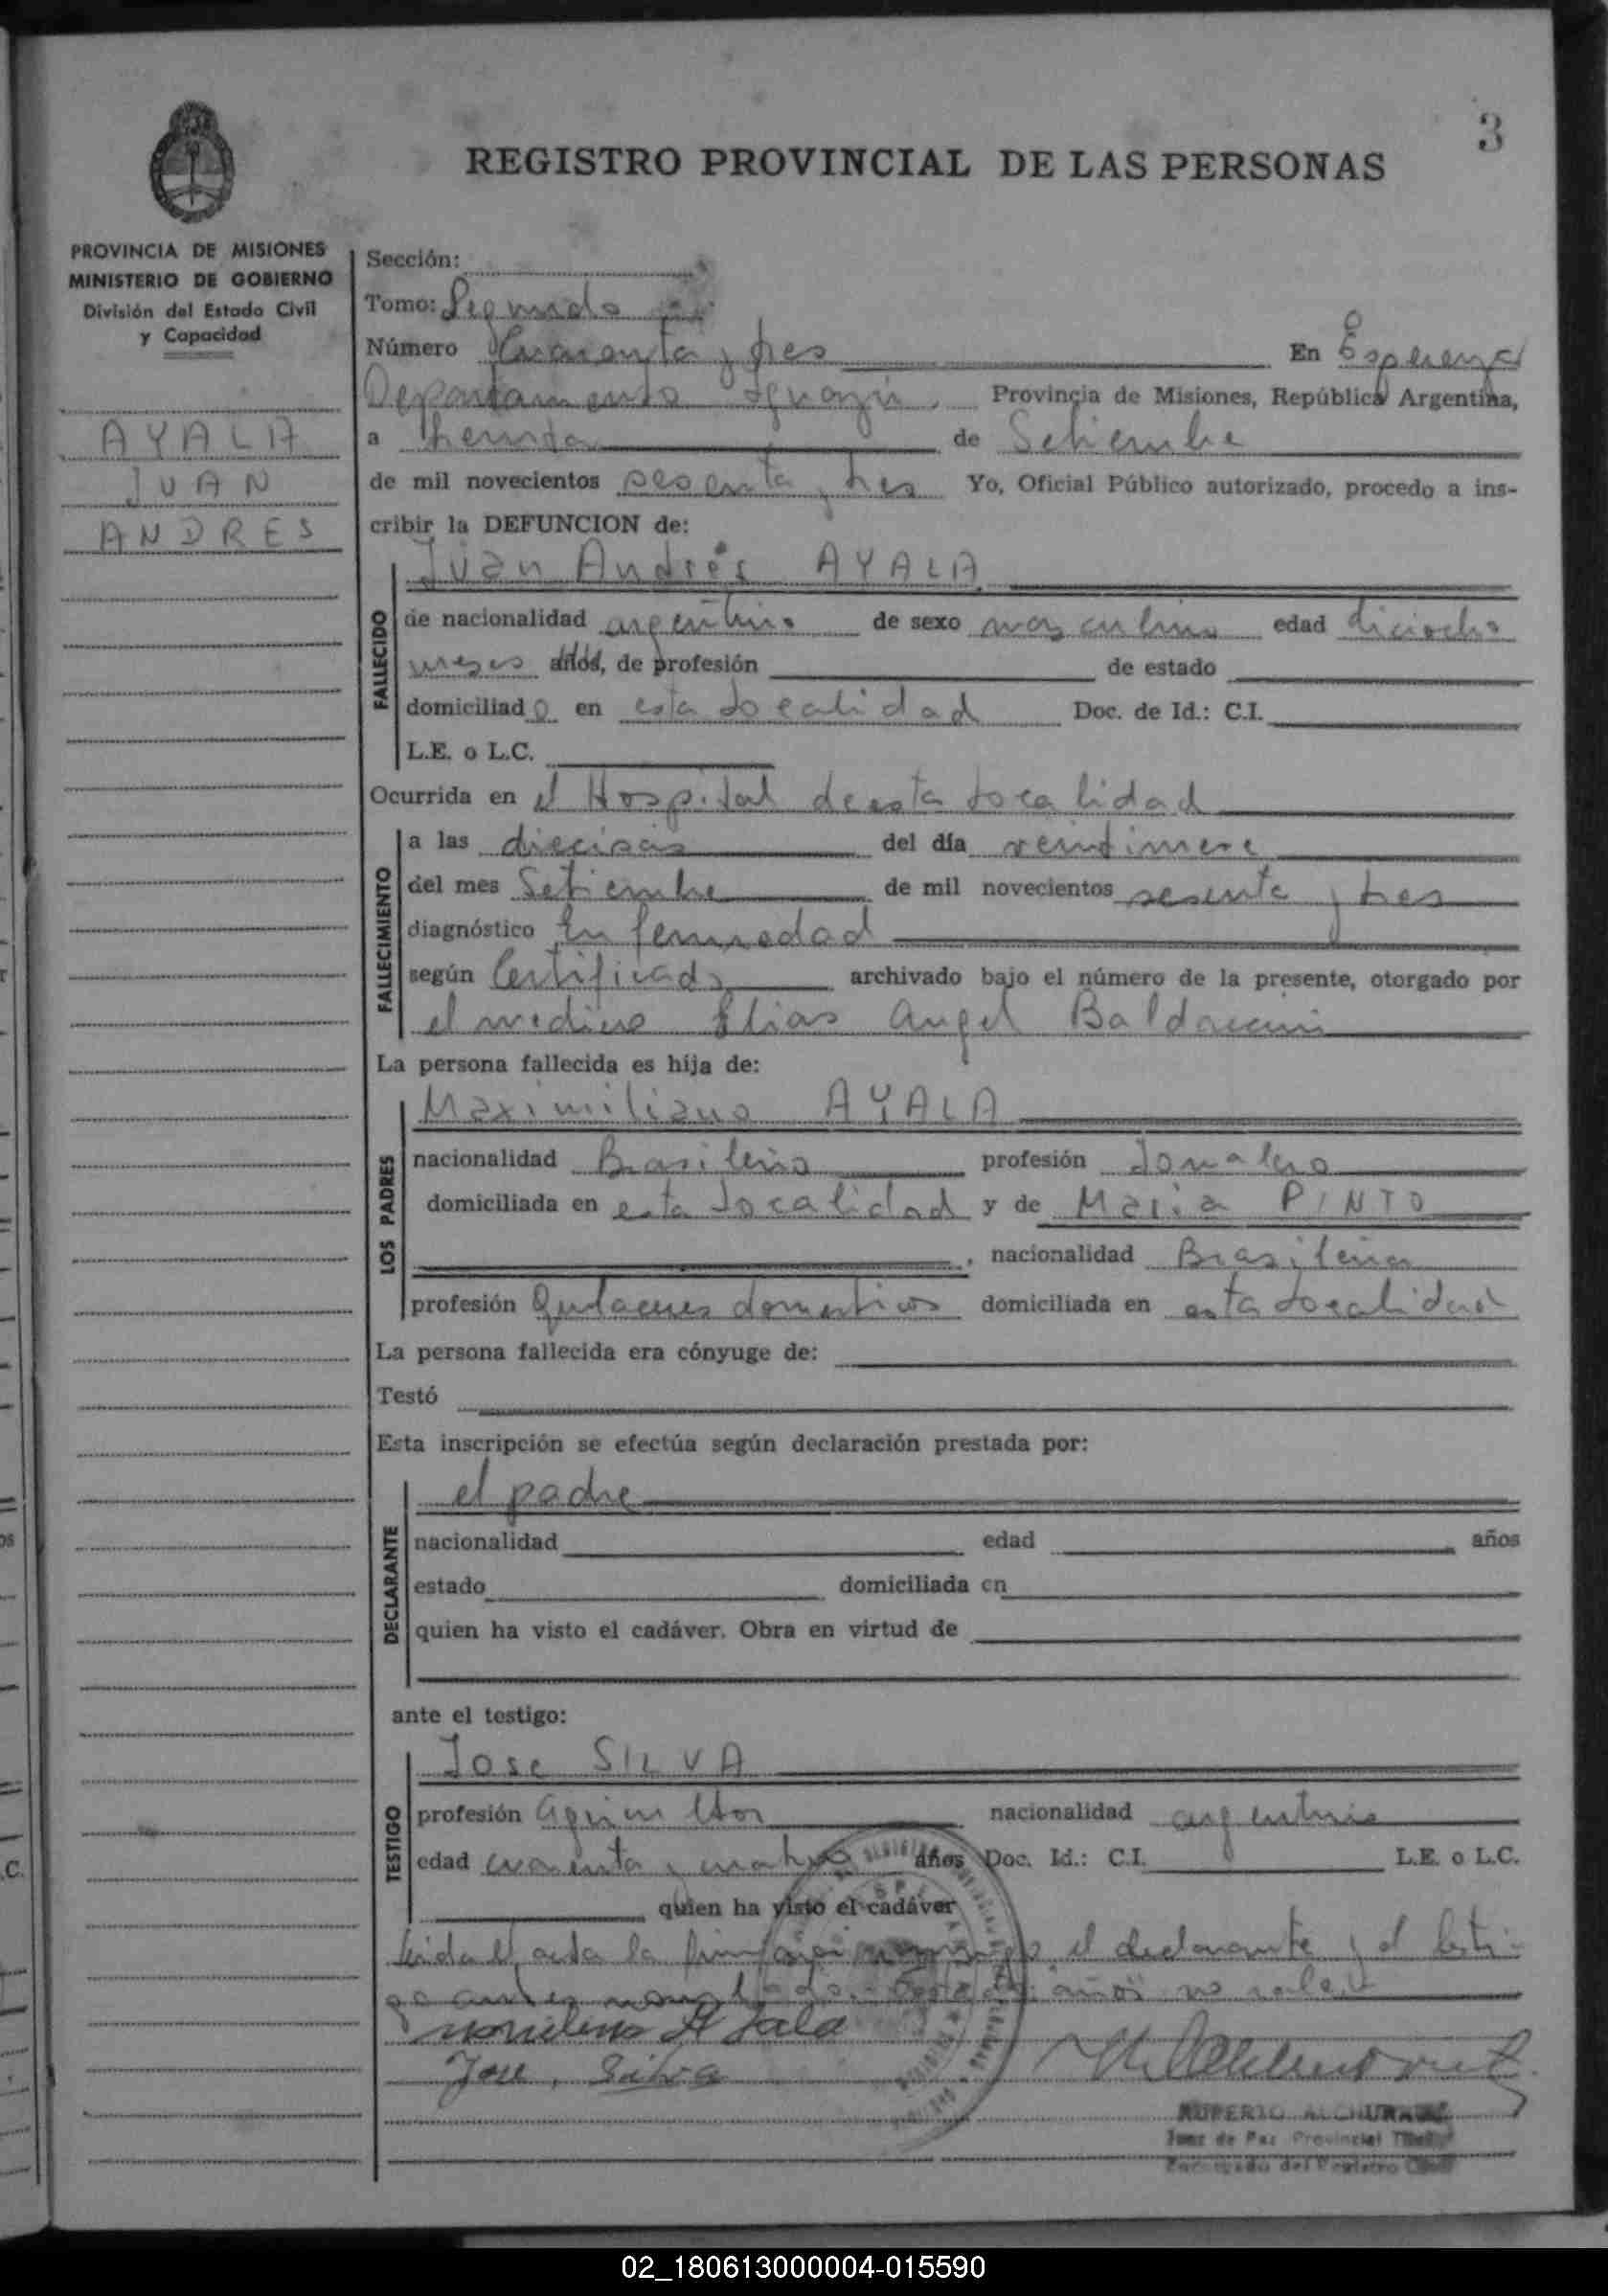 3
REGISTRO PROVINCIAL DE LAS PERSONAS
PROVINCIA DE MISIONES
MINISTERIO DE GOBIERNO
División del Estado Civil
y Capacidad
AYALA
JUAN
ANDRES
Sección:
Tomo: Segundo
Número Cuarenta y tres En Esperanza
Departamento Iguazú, Provincia de Misiones, República Argentina,
a treinta de Setiembre
de mil novecientos sesenta y tres Yo, Oficial Público autorizado, procedo a ins-
cribir la DEFUNCION de:
Juan Andrés AYALA
FALLECIDO
de nacionalidad argentino de sexo masculino edad dieciocho
meses años, de profesión de estado
domiciliado en esta localidad Doc. de Id.: C.I.
L.E. o L.C.
Ocurrida en el Hospital de esta localidad
FALLECIMIENTO
a las dieciseis del día veintinueve
del mes Setiembre de mil novecientos sesenta y tres
diagnóstico Enfermedad
según Certificado archivado bajo el número de la presente, otorgado por
el medico Elias Angel
La persona fallecida es hija de:
LOS PADRES
Maximiliano AYALA
nacionalidad Brasileño profesión Jornalero
domiciliada en esta localidad y de Maria PINTO
, nacionalidad Brasileña
profesión Quehaceres domesticos domiciliada en esta localidad
La persona fallecida era cónyuge de:
Testó
Esta inscripción se efectúa según declaración prestada por:
DECLARANTE
el padre
nacionalidad edad años
estado domiciliada en
quien ha visto el cadáver. Obra en virtud de
ante el testigo:
TESTIGO
Jose SILVA
profesión agricultor nacionalidad argentino
edad cuarenta y cuatro años Doc. Id.: C.I. L.E. o L.C.
quien ha visto el cadáver
Leida el acta la el declarante y el testi-
go antes años no vale
Ayala
Jose Silva
RUPERTO
Juez de Paz Provincial
Encargado del Registro Civil
02_180613000004-015590